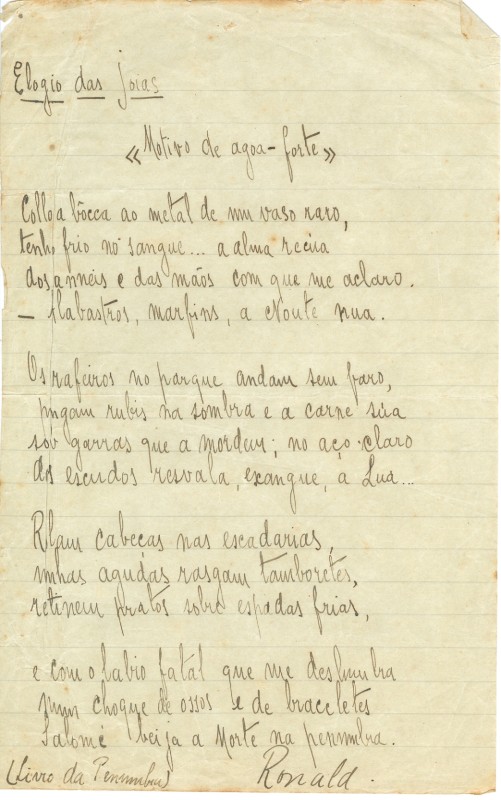 Elogio das joias
«Motivo de agoa-forte»
Collo a bôcca ao metal de um vaso raro,
tenho frio no sangue... a alma recúa
dos anneis e das mãos com que me aclaro.
— Alabastros, marfins, a Noute nua.
Os rafeiros no parque andam sem faro,
pingam rubis na sombra e a carne súa
sob garras que a mordem; no aço claro
dos escudos resvala, exangue, a Lua...
Rolam cabeças nas escadarias,
unhas agudas rasgam tamboretes,
retinem pratos sobre espadas frias,
e com o labio fatál que me deslumbra
num choque de ossos e de braceletes
Salomé beija a Morte na penumbra.
(Livro da Penumbra) Ronald.